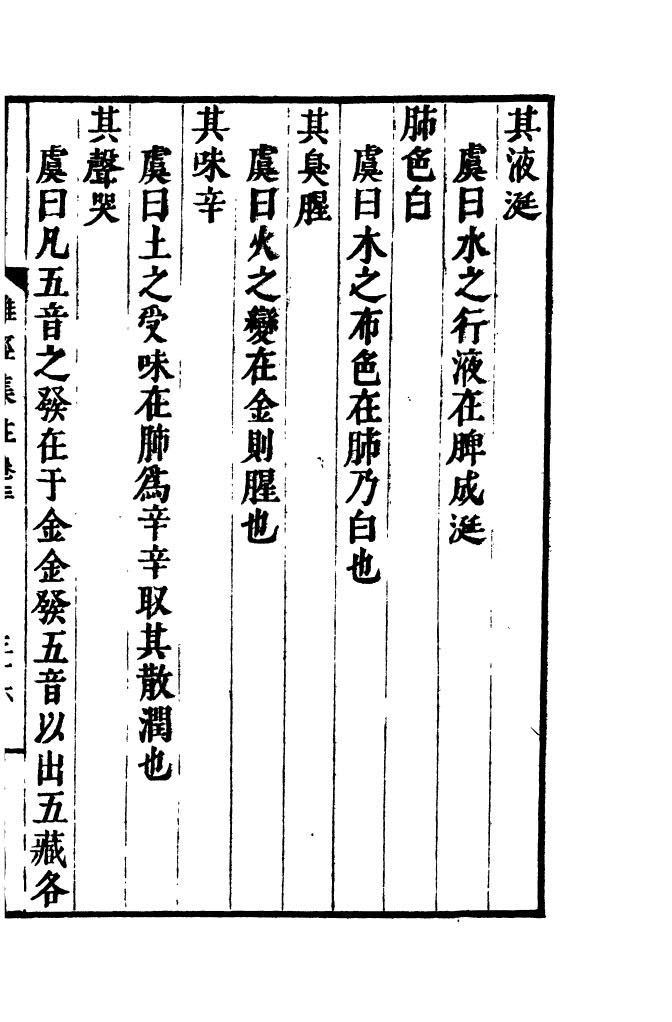 其液涎
虞曰水之行液在脾成涎
肺色白
虞曰木之布色在肺乃白也
其臭腥
虞曰火之變在金則腥也
其味辛
虞曰土之受味在肺爲辛辛取其散潤也
其聲哭
虞曰凡五音之發在于金金發五音以出五藏各